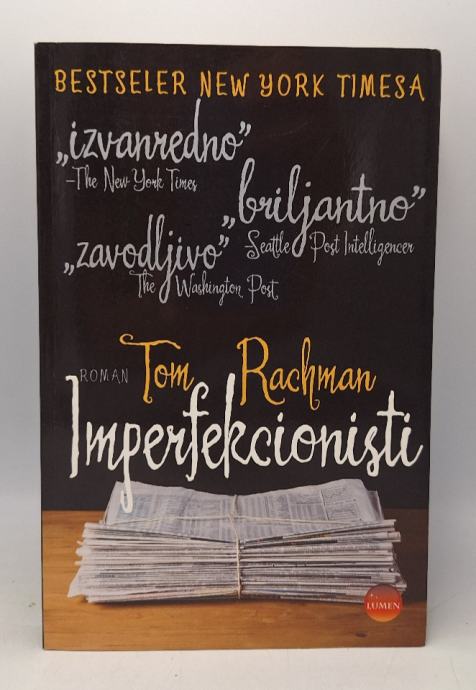 BESTSELER NEW YORK TIMESA
„izvanredno”
–The New York Times
„briljantno”
–Seattle Post Intelligencer
„zavodljivo”
The Washington Post
ROMAN Tom Rachman
Imperfekcionisti
LUMEN